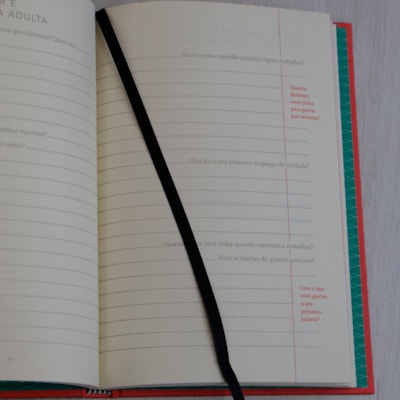 R E
A ADULTA
Você recebia mesada ou tinha algum trabalho?
Quanto
dinheiro
você tinha
para gastar
por semana?
praticar esportes?
Qual foi o seu primeiro emprego de verdade?
Quantos você tinha quando começou a trabalhar?
Você se lembra de quanto ganhava?
Com o que
você gastou
o seu
primeiro
salário?